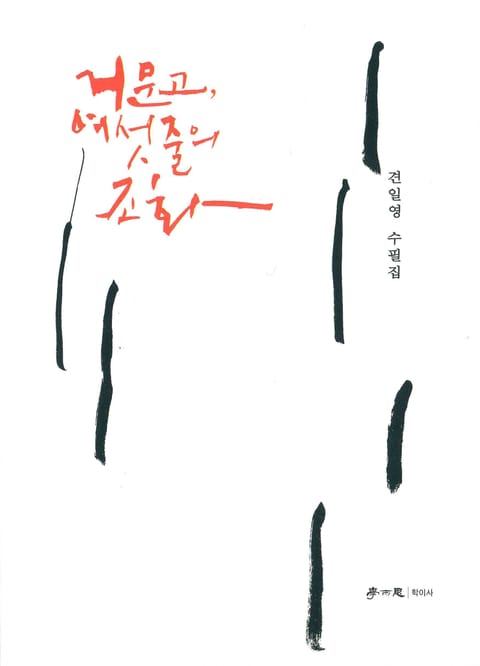 거문고,
여섯 줄의
조화
견일영 수필집
學而思 | 학이사